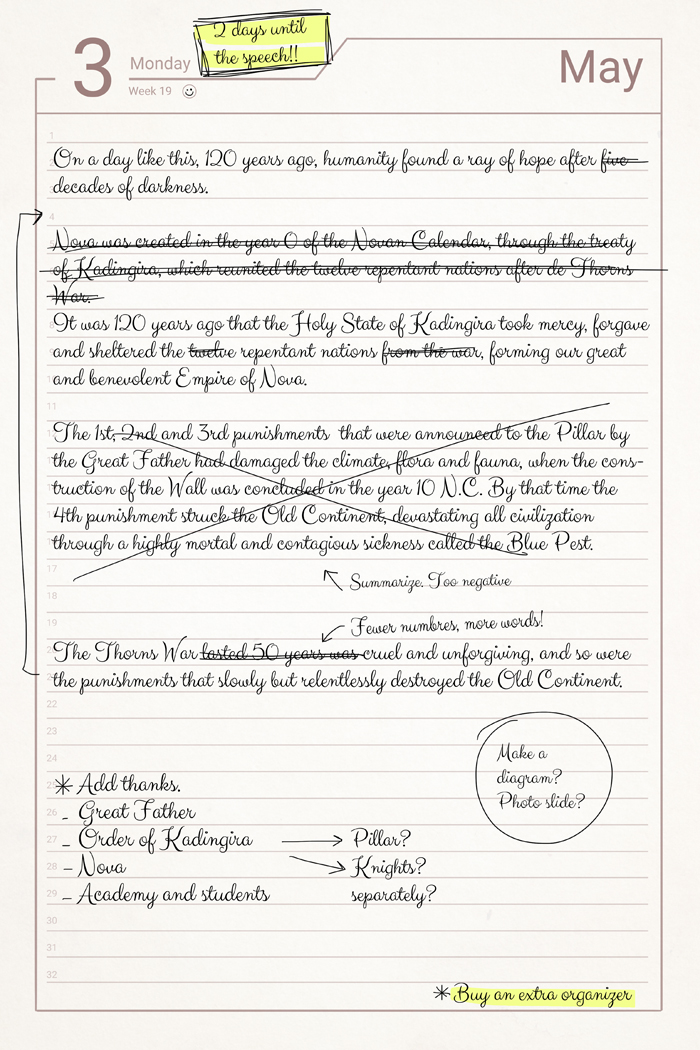 2 days until
the speech!!
3
Monday
May
Week 19
1
On a day like this, 120 years ago, humanity found a ray of hope after five
decades of darkness.
4
Nova was created in the year 0 of the Novan Calendar, through the treaty
of Kadingira, which reunited the twelve repentant nations after de Thorns
War.
It was 120 years ago that the Holy State of Kadingira took mercy, forgave
and sheltered the twelve repentant nations from the war, forming our great
and benevolent Empire of Nova.
11
The 1st, 2nd and 3rd punishments that were announced to the Pillar by
the Great Father had damaged the climate, flora and fauna, when the cons-
truction of the Wall was concluded in the year 10 N.C. By that time the
4th punishment struck the Old Continent, devastating all civilization
through a highly mortal and contagious sickness called the Blue Pest.
17
Summarize. Too negative
18
19
Fewer numbres, more words!
The Thorns War lasted 50 years was cruel and unforgiving, and so were
the punishments that slowly but relentlessly destroyed the Old Continent.
22
23
Make a
24
diagram?
Photo slide?
25
* Add thanks.
26
- Great Father
27
- Order of Kadingira → Pillar?
28
- Nova → Knights?
29
- Academy and students separately?
30
31
32
* Buy an extra organizer